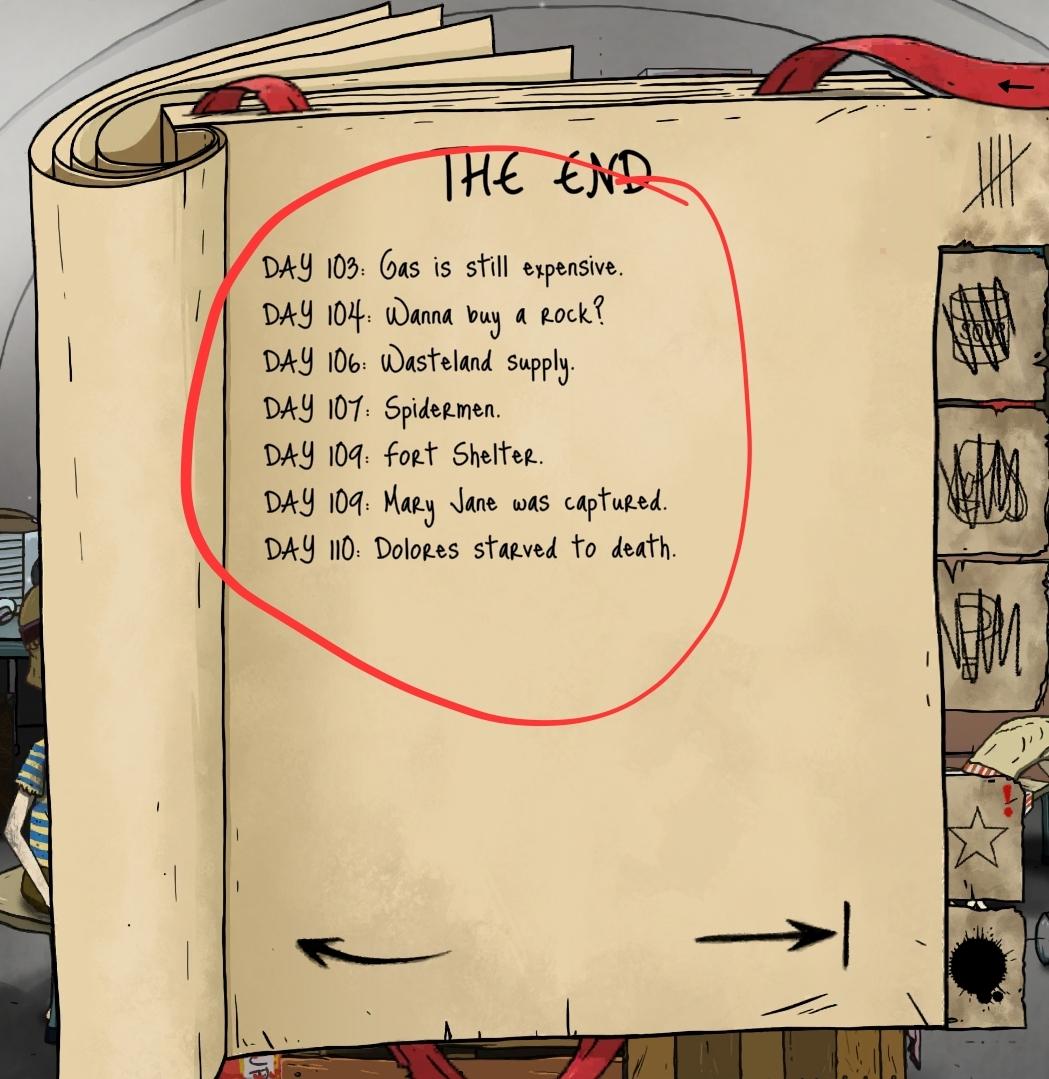 THE END
DAY 103: Gas is still expensive.
DAY 104: Wanna buy a rock?
DAY 106: Wasteland supply.
DAY 107: Spidermen.
DAY 109: Fort Shelter.
DAY 109: Mary Jane was captured.
DAY 110: Dolores starved to death.